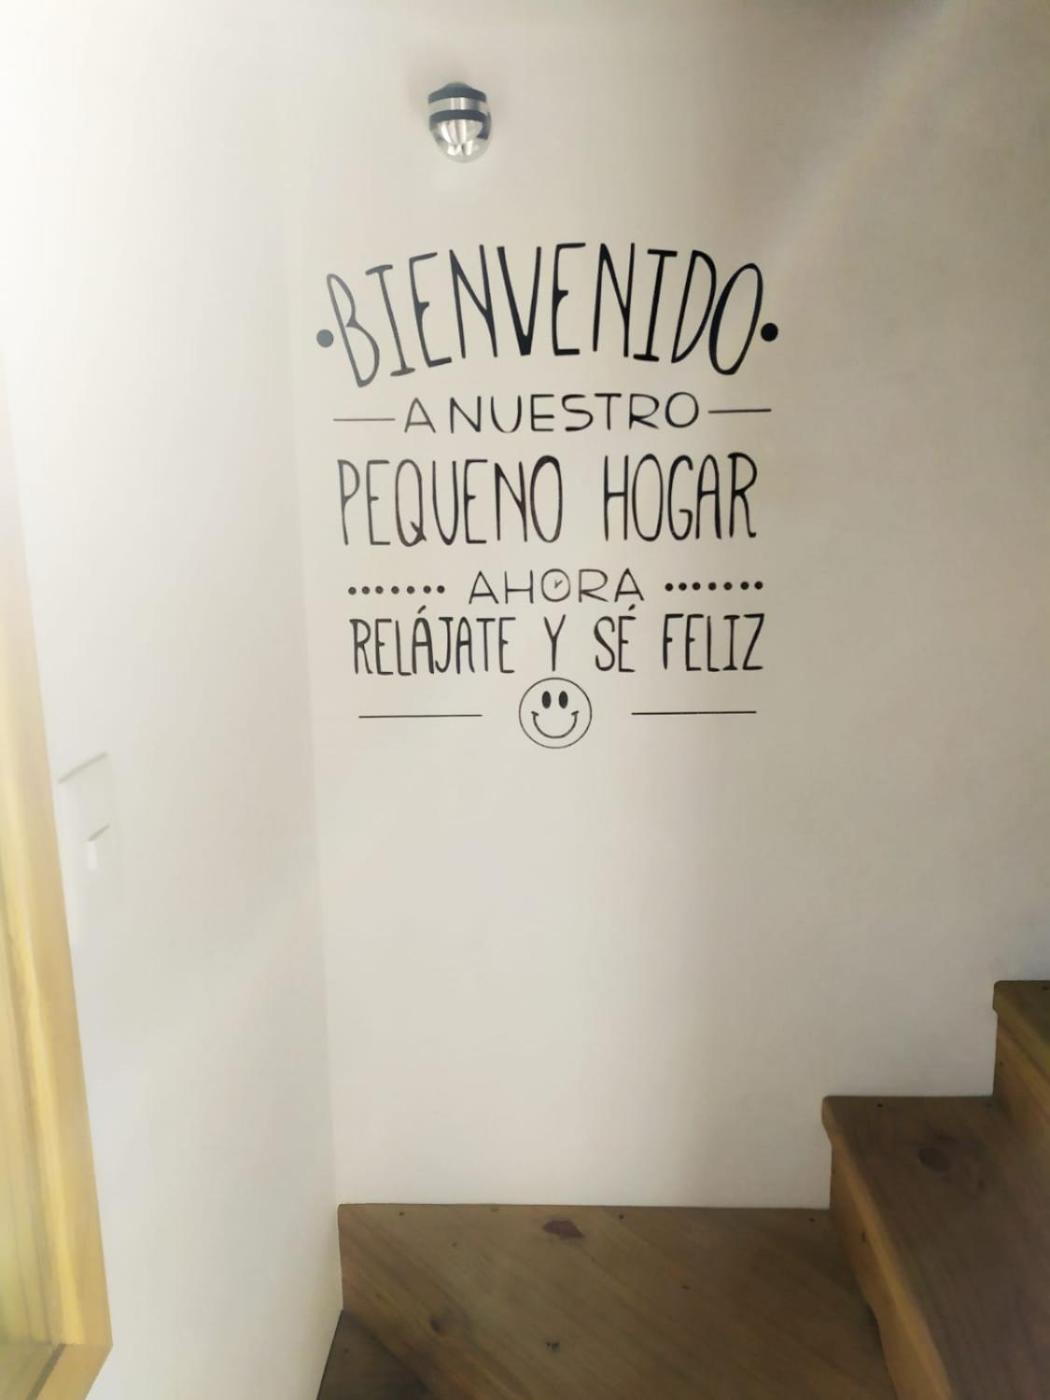 BIENVENIDO
A NUESTRO
PEQUENO HOGAR
AHORA
RELÁJATE Y SÉ FELIZ